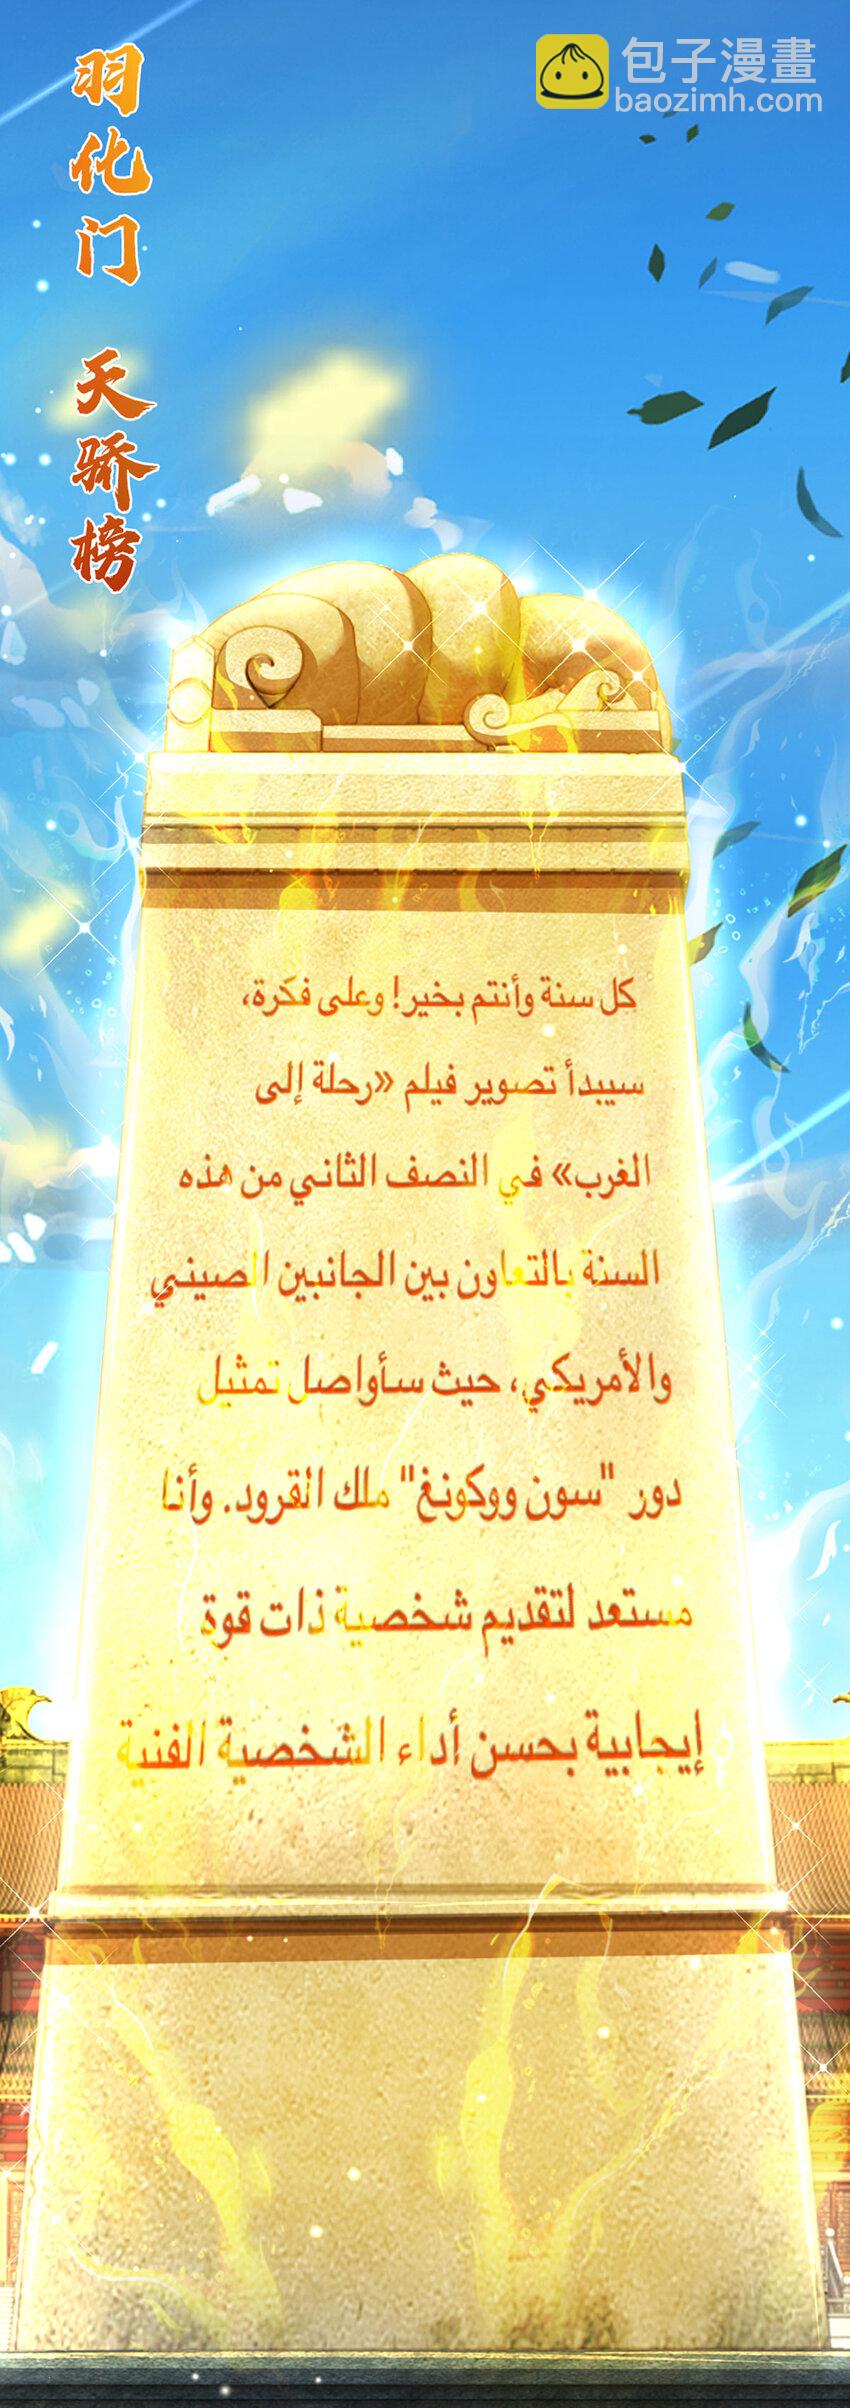 羽化门 天骄榜
包子漫畫
baozimh.com
كل سنة وأنتم بخير! وعلى فكرة،
سيبدأ تصوير فيلم «رحلة إلى
الغرب» في النصف الثاني من هذه
السنة بالتعاون بين الجانبين الصيني
والأمريكي، حيث سأواصل تمثيل
دور "سون ووكونغ" ملك القرود. وأنا
مستعد لتقديم شخصية ذات قوة
إيجابية بحسن أداء الشخصية الفنية